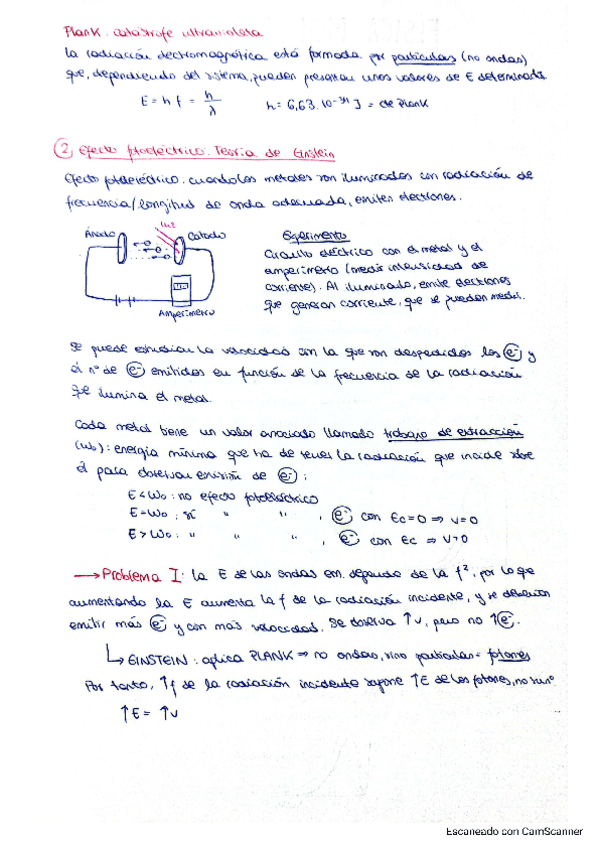 Plank. Catástrofe ultravioleta
La radiación electromagnética está formada por partículas (no ondas)
que, dependiendo del sistema, pueden presentar unos valores de E determinada
E = h f = h/λ   h = 6,63·10⁻³⁴ J = cte Plank
2 Efecto fotoeléctrico. Teoría de Einstein
Efecto fotoeléctrico. cuando los metales son iluminados con radiación de
frecuencia/longitud de onda adecuada, emiten electrones.
Luz
Ánodo
Cátodo
e
e
Amperímetro
Experimento
Circuito eléctrico con el metal y el
amperímetro (medir intensidad de
corriente). Al iluminado, emite electrones
que generan corriente, que se pueden medir.
Se puede estudiar la velocidad con la que son despedidos los e⁻ y
el nº de e⁻ emitidos en función de la frecuencia de la radiación
que ilumina el metal.
Cada metal tiene un valor asociado llamado trabajo de extracción
(W₀): energía mínima que ha de tener la radiación que incide sobre
él para observar emisión de e⁻:
E < W₀ : no efecto fotoeléctrico
E = W₀ : sí " " , e⁻ con Ec = 0 ⇒ v = 0
E > W₀ : " " " , e⁻ con Ec ⇒ v > 0
→ Problema I: La E de las ondas em. depende de la f², por lo que
aumentando la E aumenta la f de la radiación incidente, y se deberían
emitir más e⁻ y con más velocidad. Se observa ↑v, pero no ↑e⁻.
↳ EINSTEIN: aplica PLANK ⇒ no ondas, sino partículas = fotones
Por tanto, ↑f de la radiación incidente supone ↑E de los fotones, no su nº
↑E = ↑v
Escaneado con CamScanner